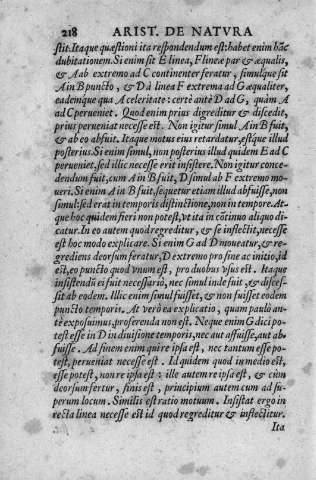 218 ARIST. DE NATVRA
stit. Itaque quæstioni ita respondendum est: habet enim hãc
dubitationem. Si enim sit E linea, F lineæ par & æqualis,
& A ab extremo ad C continenter feratur, simulque sit
A in B puncto, & D à linea F extrema ad G æqualiter,
eademque qua A celeritate: certè antè D ad G, quàm A
ad C perueniet. Quod enim prius digreditur & discedit,
prius perueniat necesse est. Non igitur simul A in B fuit,
& ab eo abfuit. Itaque motus eius retardatur, estque illud
posterius. Si enim simul, non posterius illud quidem E ad C
perueniet, sed illic necesse erit insistere. Non igitur conce-
dendum fuit, cum A in B fuit, D simul ab F extremo mo-
ueri. Si enim A in B fuit, sequetur etiam illud abfuisse, non
simul: sed erat in temporis distinctione, non in tempore. At-
que hoc quidem fieri non potest, vt ita in cõtinuo aliquo di-
catur. In eo autem quod regreditur, & se inflectit, necesse
est hoc modo explicare. Si enim G ad D moueatur, & re-
grediens deorsum feratur, D extremo pro fine ac initio, id
est, eo puncto quod vnum est, pro duobus vsus est. Itaque
insistendũ ei fuit necessariò, nec simul inde fuit, & disces-
sit ab eodem. Illic enim simul fuisset, & non fuisset eodem
puncto temporis. At verò ea explicatio, quam paulò an-
tè exposuimus, proferenda non est. Neque enim G dici po-
test esse in D in diuisione temporis, nec aut affuisse, aut ab-
fuisse. Ad finem enim, qui re ipsa est, nec tantum esse po-
test, perueniat necesse est. Id quidem quod in medio est,
esse potest, non re ipsa est: ille autem re ipsa est, & cùm
deorsum fertur, finis est, principium autem cum ad su-
perum locum. Similis est ratio motuum. Insistat ergo in
recta linea necesse est id quod regreditur & inflectitur.
Ita